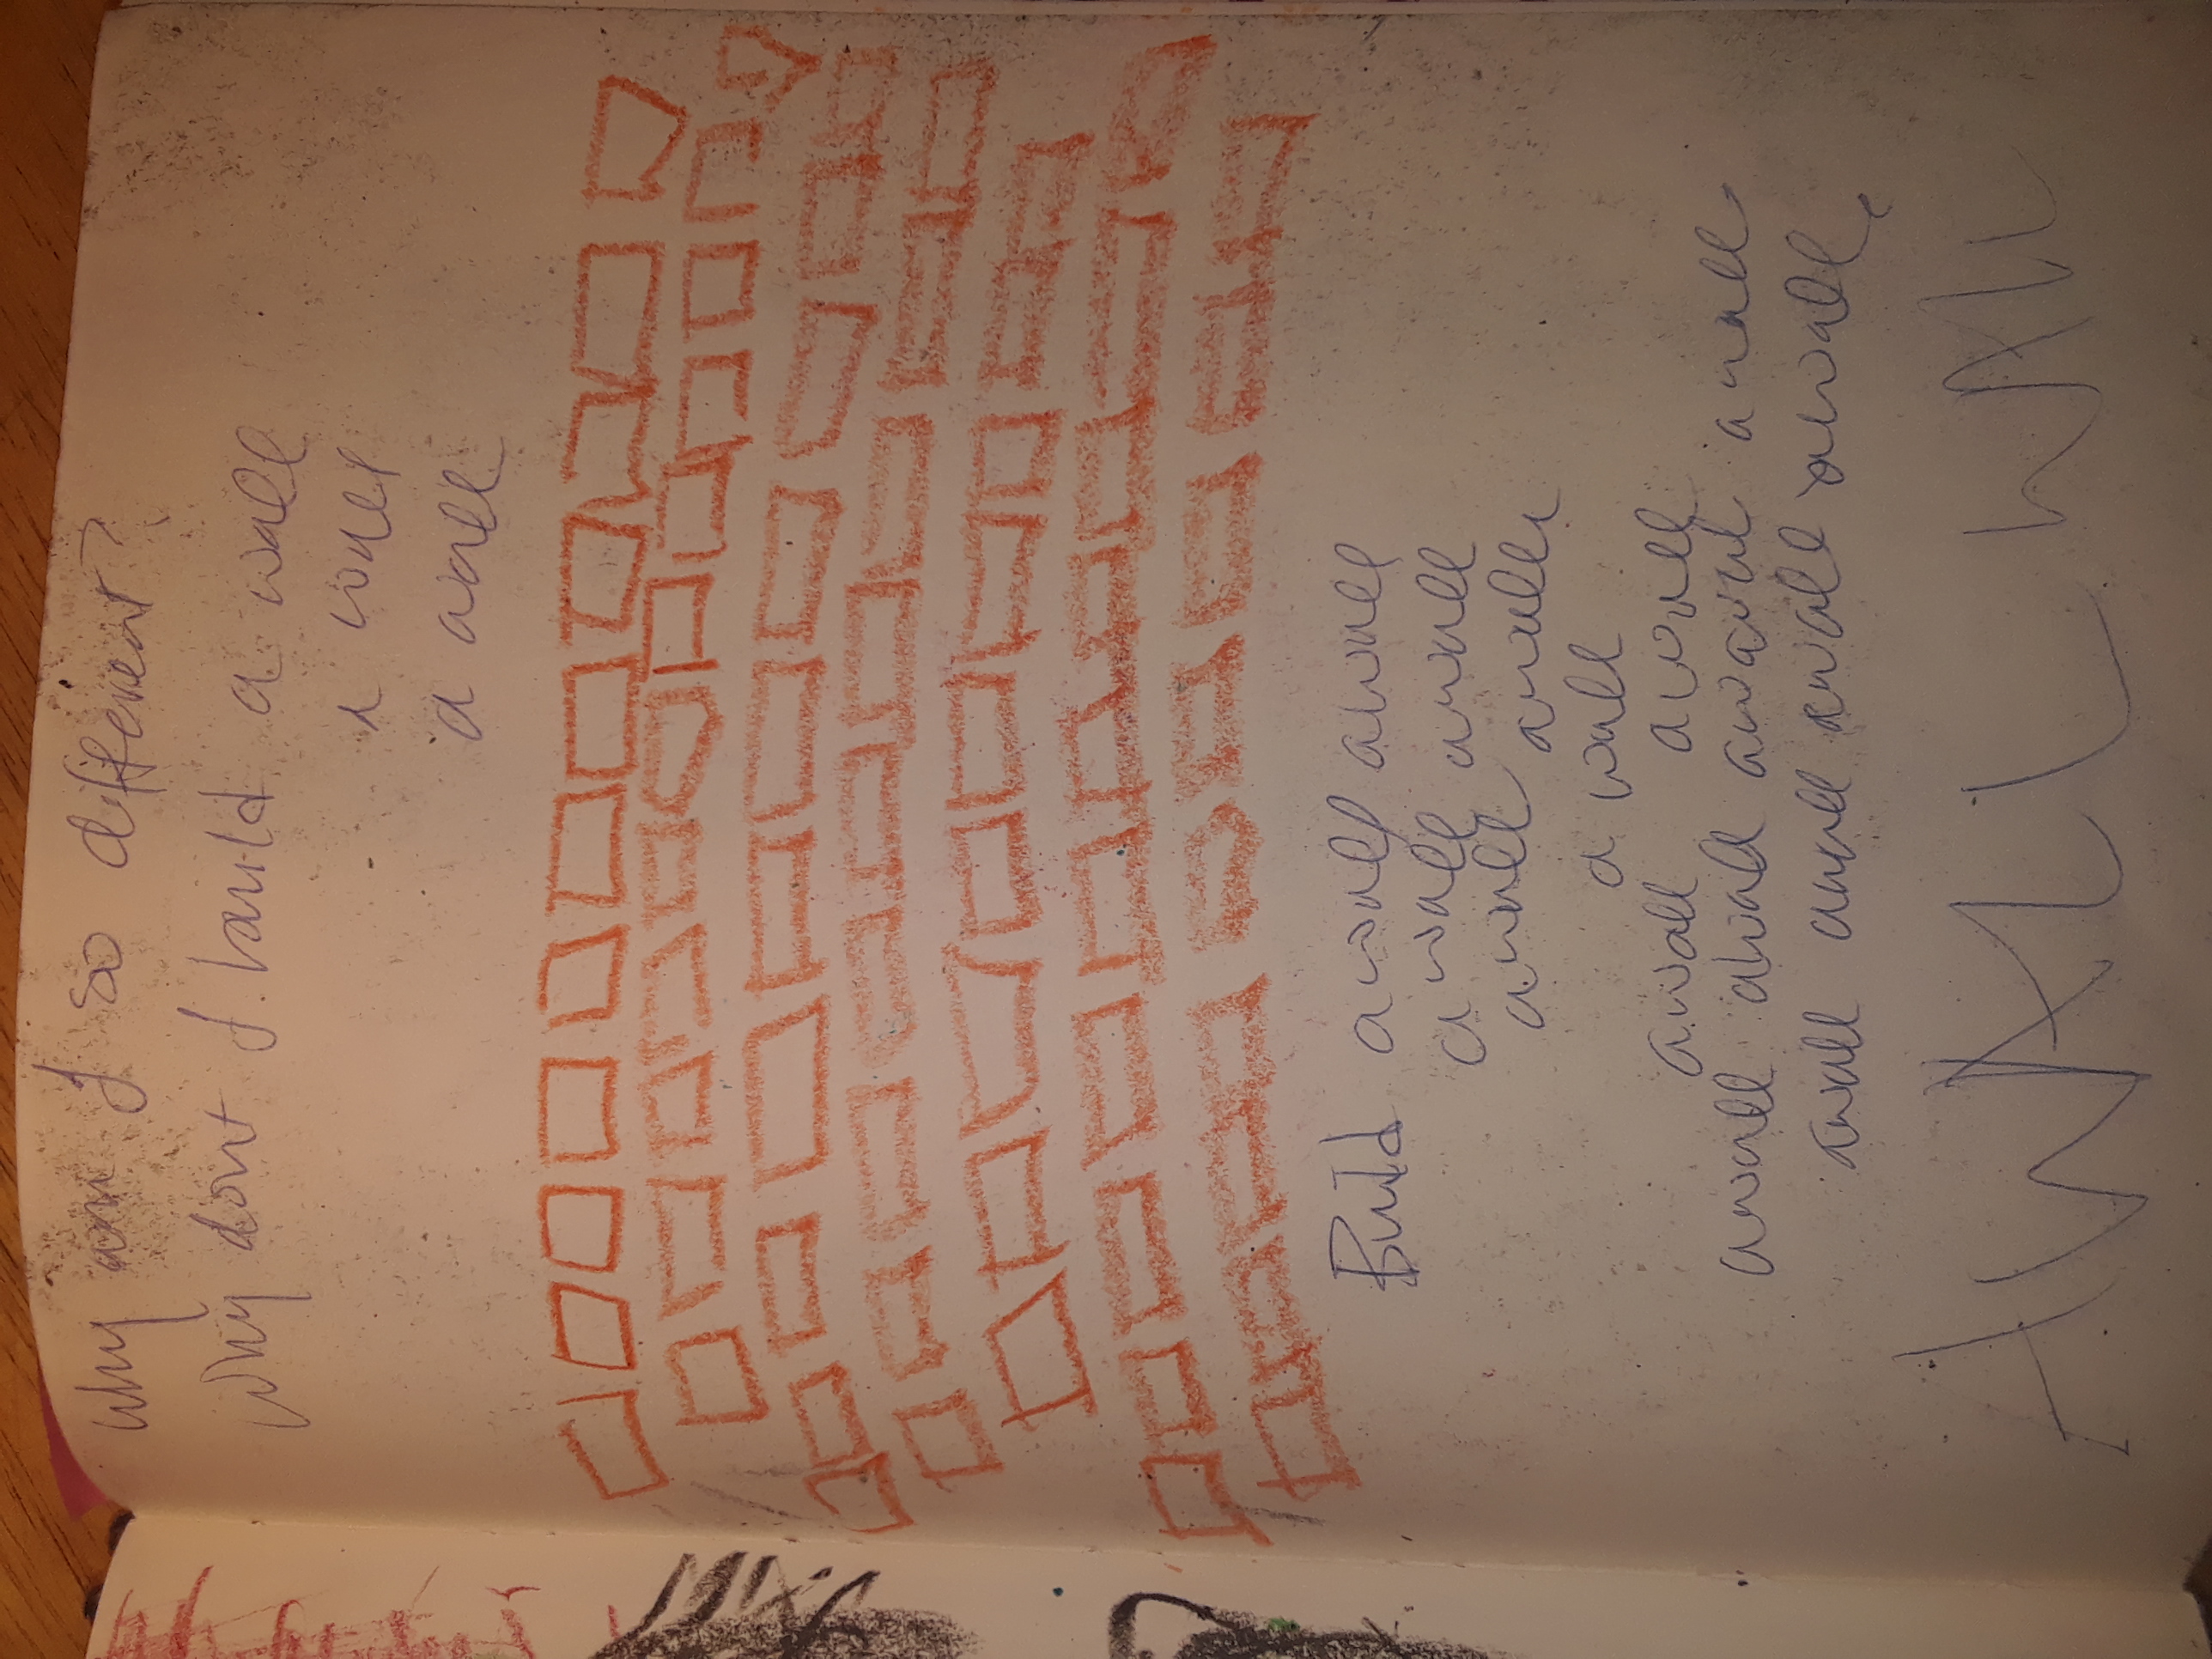 Why am I so different?
Why dont I build a wall
a wall
a wall
Build a wall a wall
a wall a wall
a wall a wall
a wall
a wall a wall
a wall a wall a wall a wall
a wall a wall a wall a wall
A WALL WALL